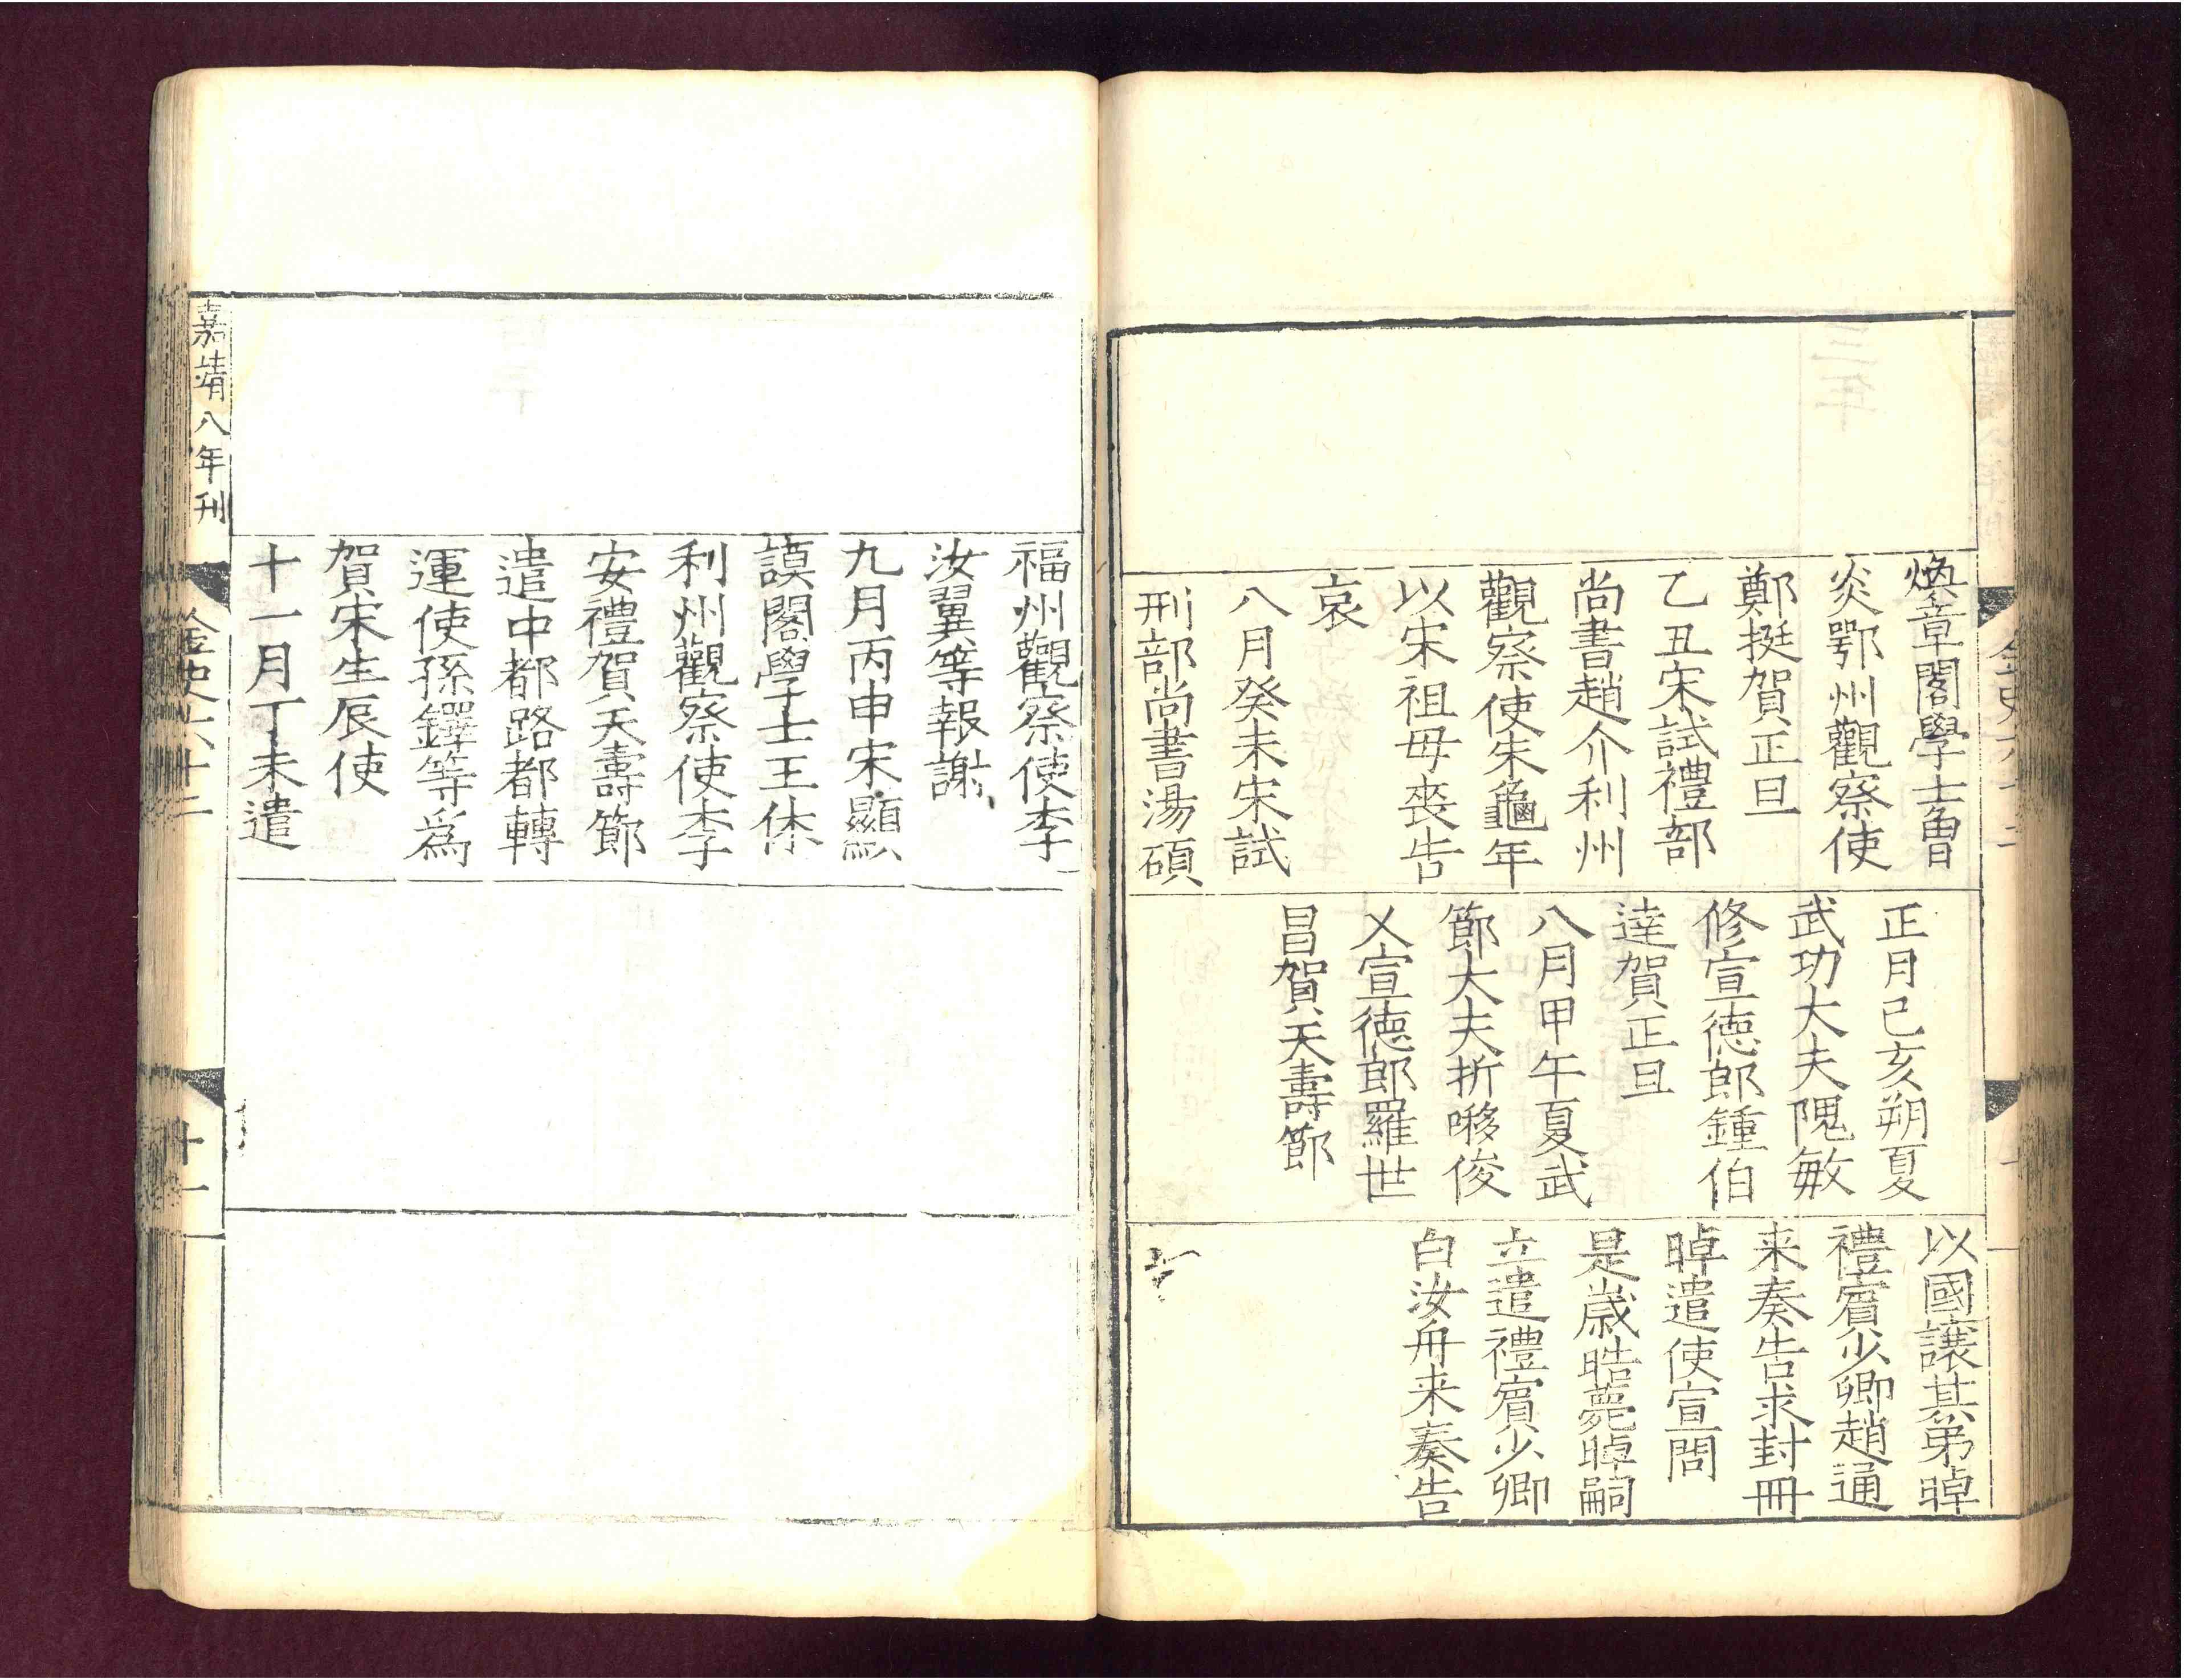 煥章閣學士曾
炎鄂州觀察使
鄭挺賀正旦
乙丑宋試禮部
尚書趙介利州
觀察使朱龜年
以宋祖母喪告
哀
八月癸未宋試
刑部尚書湯碩
正月己亥朔夏
武功大夫隗敏
修宣德郎鍾伯
達賀正旦
八月甲午夏武
節大夫折㖼俊
乂宣德郎羅世
昌賀天壽節
以國讓其弟晫
禮賓少卿趙通
来奏告求封冊
晫遣使宣問
是歲晧薨晫嗣
立遣禮賓少卿
白汝舟来奏告
福州觀察使李
汝翼等報謝
九月丙申宋顯
謨閣學士王休
利州觀察使李
安禮賀天壽節
遣中都路都轉
運使孫鐸等爲
賀宋生辰使
十一月丁未遣
嘉靖八年刊
金史六十二
十一